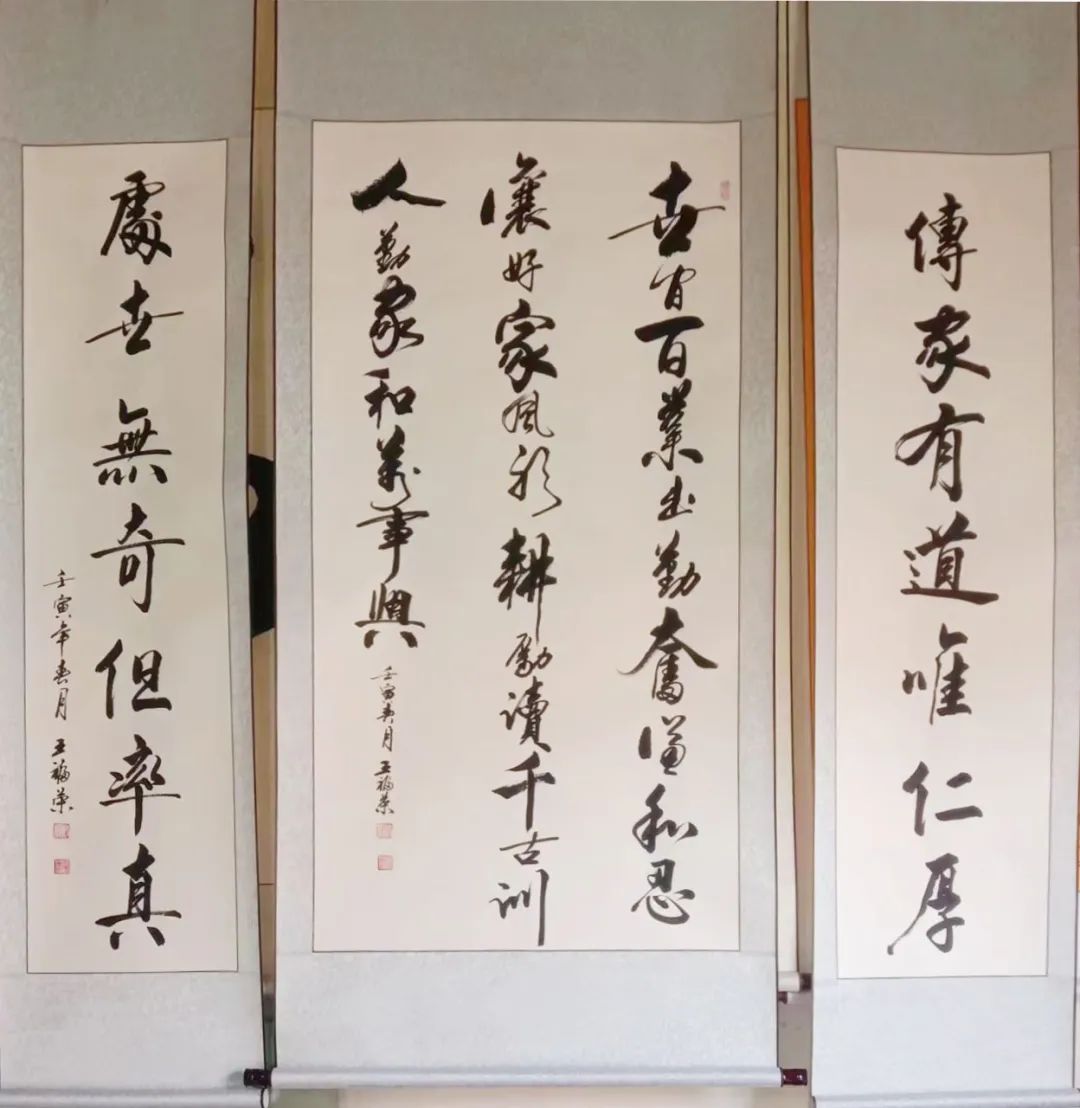 傳家有道唯仁厚
世間百業出勤奮謙和忍
讓好家風耕勵讀千古訓
人勤家和萬事興
壬寅春月 王福榮
處世無奇但率真
壬寅年春月 王福榮